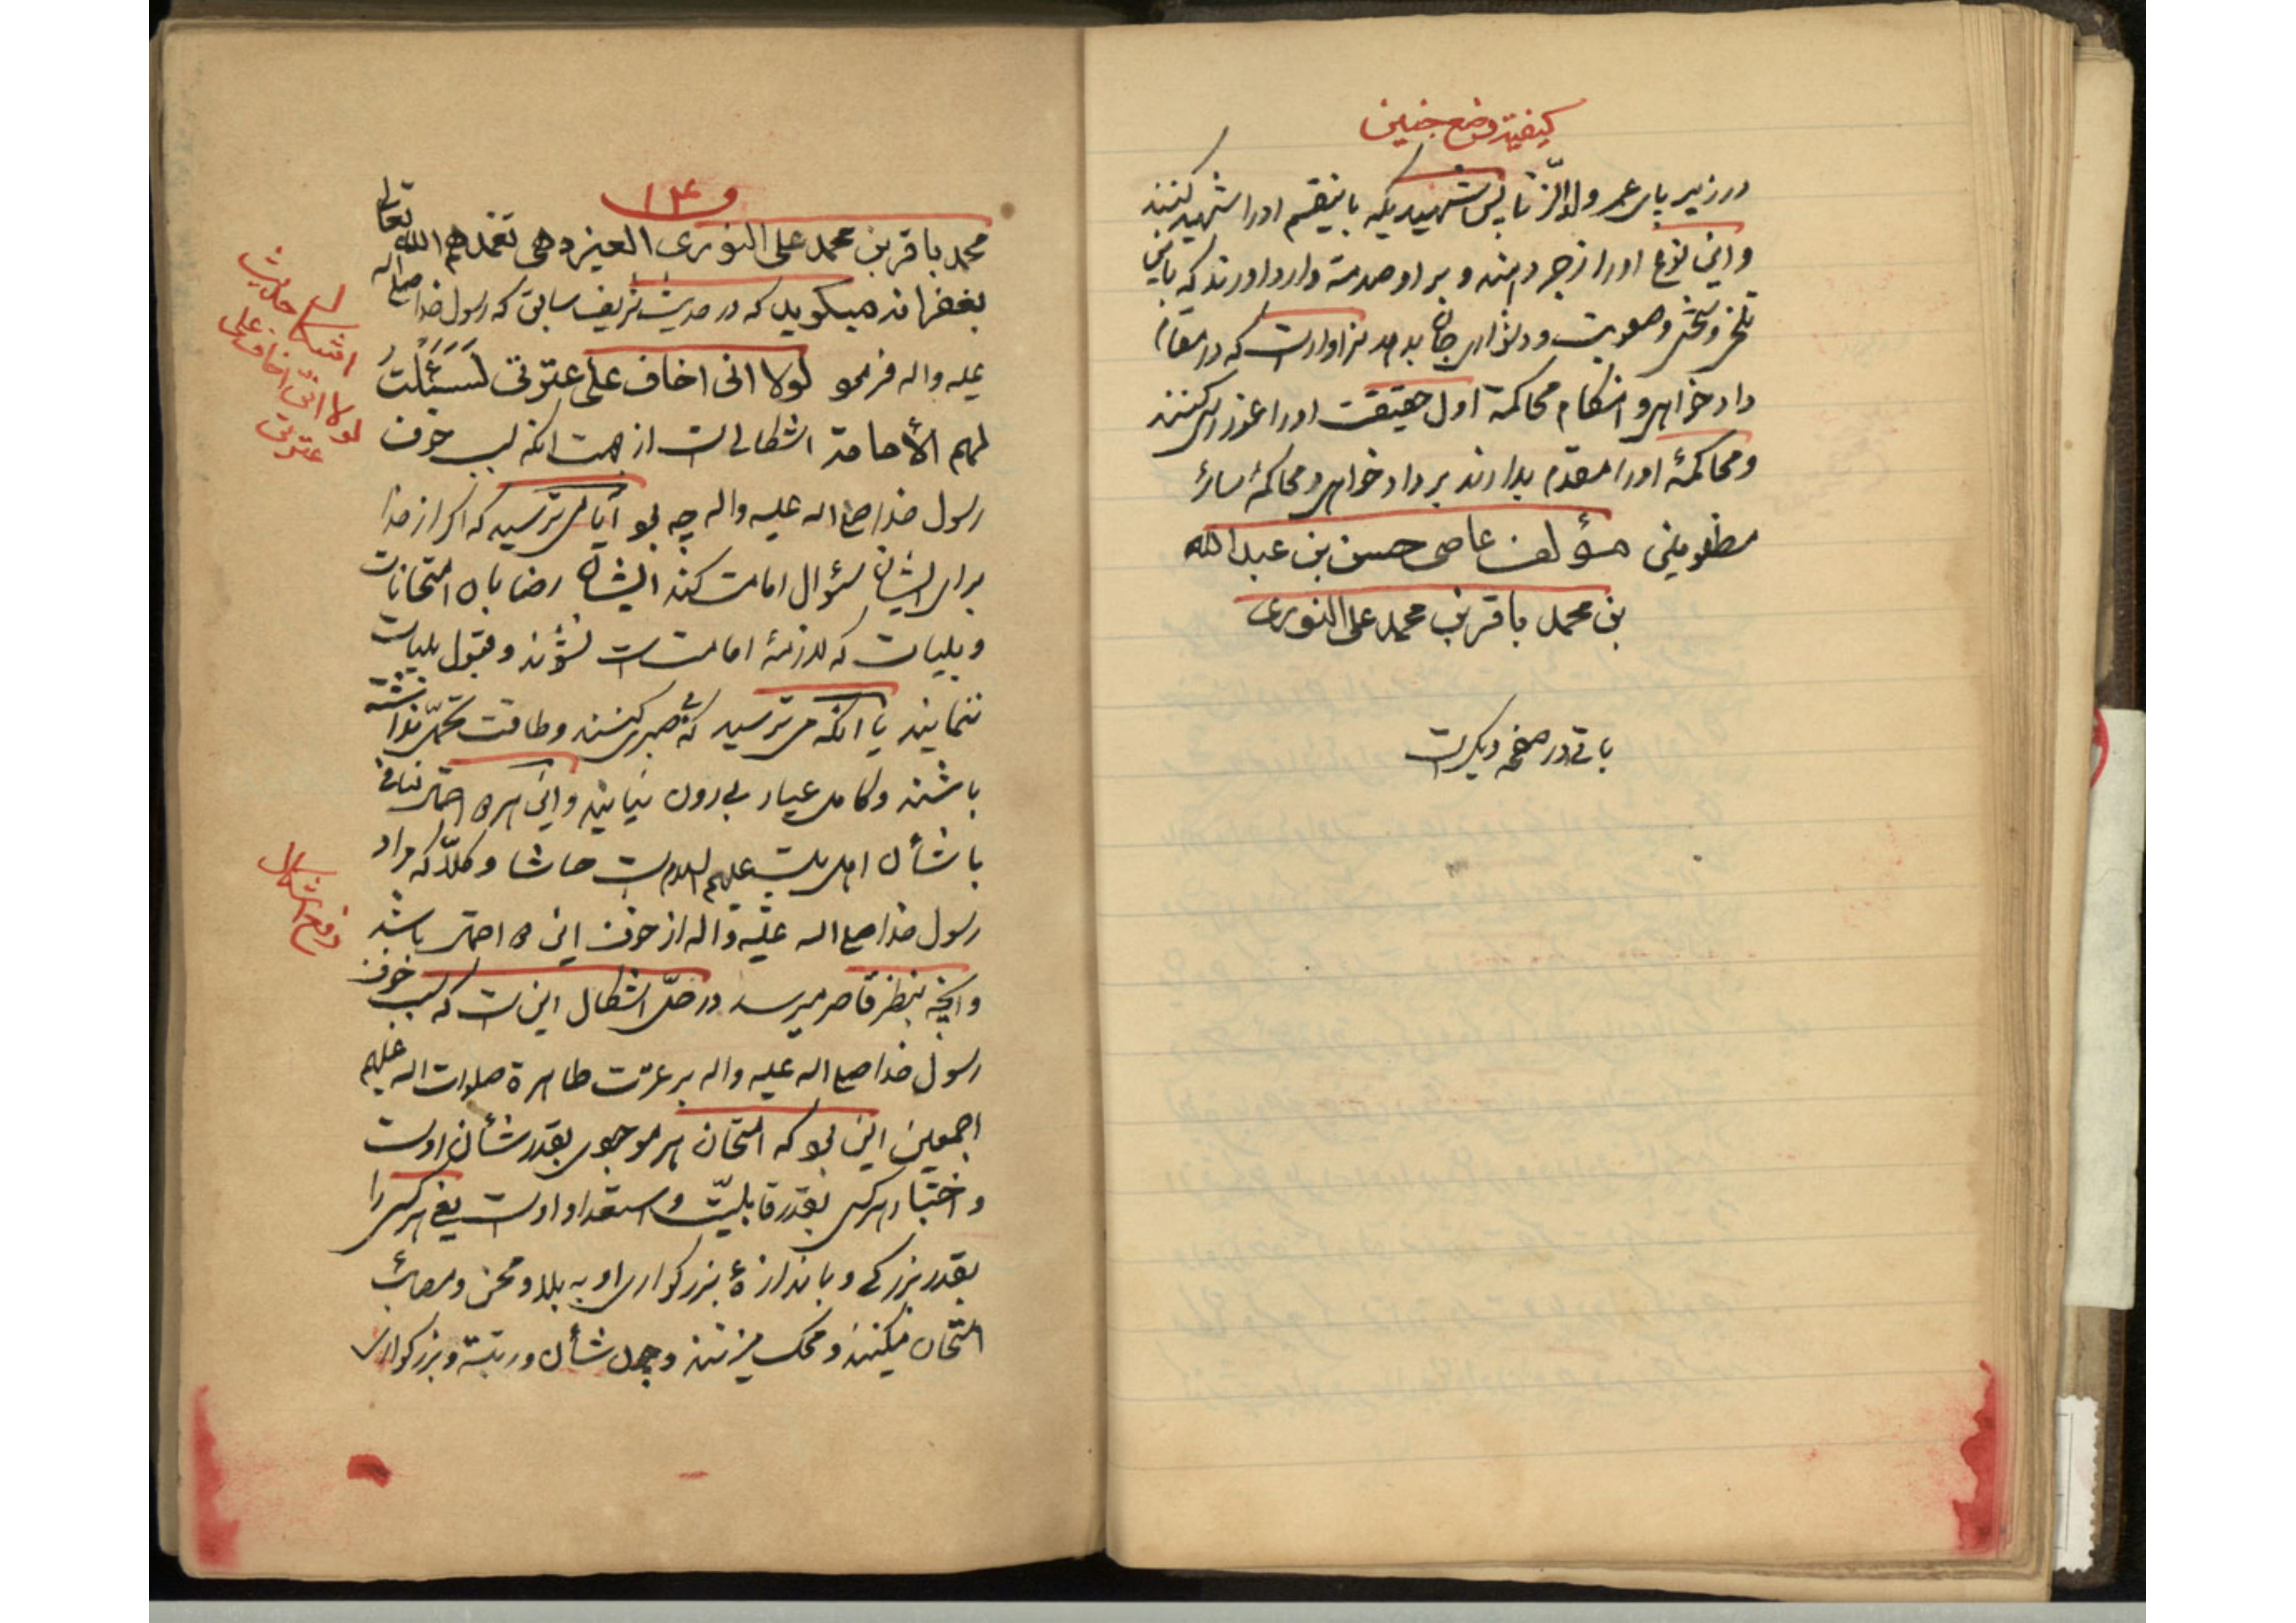 کیفیت وضع جنین
در زیر پای عمر ولد الزنا پس شهیدیکه باینقسم اورا شهید کنند
و این نوع اورا زجر دهند و بر او صدمة وارد اورند که باین
تلخی و سختی و صعوبت و دشواری جان بدهد سزاوار است که در مقام
داد خواهی و هنگام محاکمة اول حقیقت اورا غوررسی کنند
و محاکمهٔ اورا مقدم بدارند بر داد خواهی و محاکمهٔ سائر
مظلومین مؤلف عاصی حسن بن عبدالله
بن محمد باقر بن محمد علی النوری
باقی در صفحه دیگر است
و ١٤
محمد باقر بن محمد علی النوری العیزدهی تغمدهم الله تعالی
بغفرانه میگوید که در حدیث شریف سابق که رسول خدا صلی اله
علیه واله فرمود لولا انی اخاف علی عترتی لسئلت
لهم الأمامة اشکالی است از جهت انکه سبب خوف
رسول خدا صلی اله علیه واله چه بود آیا می ترسید که اگر از خدا
برای ایشان سؤال امامت کند ایشان رضا باین امتحانات
و بلیات که لازمهٔ امامت است نشوند و قبول بلیات
ننمایند یا انکه می ترسید که صبر نکنند و طاقت تحمل نداشته
باشند و کامل عیار بیرون نیایند و این هر دو احتمال منافی
با شأن اهل بیت علیهم السلام است حاشا و کلّا که مراد
رسول خدا صلی اله علیه واله از خوف این دو احتمال باشد
و انچه بنظر قاصر میرسد در حلّ اشکال این است که سبب خوف
رسول خدا صلی اله علیه واله بر عترت طاهرة صلوات اله علیهم
اجمعین این بود که امتحان هر موجودی بقدر شأن اوست
و اختبار هر کس بقدر قابلیّت و استعداد اوست یعنی هر کس را
بقدر بزرگی و باندازهٔ بزرگواری او به بلا و محن و مصائب
امتحان میکنند و محک میزنند و چون شأن و رتبة و بزرگواری
اشکال حدیث
لولا انّی اخاف علی
عترتی
دفع اشکال